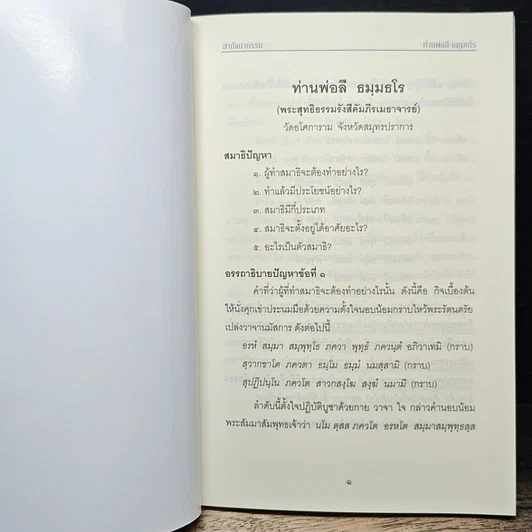 สากัจฉาธรรม
ท่านพ่อลี ธมฺมธโร
ท่านพ่อลี ธมฺมธโร
(พระสุทธิธรรมรังสีคัมภีรเมธาจารย์)
วัดอโศการาม จังหวัดสมุทรปราการ
สมาธิปัญหา
๑. ผู้ทำสมาธิจะต้องทำอย่างไร?
๒. ทำแล้วมีประโยชน์อย่างไร?
๓. สมาธิมีกี่ประเภท
๔. สมาธิจะตั้งอยู่ได้อาศัยอะไร?
๕. อะไรเป็นตัวสมาธิ?
อรรถาธิบายปัญหาข้อที่ ๑
คำที่ว่าผู้ที่ทำสมาธิจะต้องทำอย่างไรนั้น ดังนี้คือ กิจเบื้องต้น
ให้นั่งคุกเข่าประนมมือด้วยความตั้งใจนอบน้อมกราบไหว้พระรัตนตรัย
เปล่งวาจานมัสการ ดังต่อไปนี้
อรหํ สมฺมา สมฺพุทฺโธ ภควา พุทฺธํ ภควนฺตํ อภิวาเทมิ (กราบ)
สฺวากขาโต ภควตา ธมฺโม ธมฺมํ นมสฺสามิ (กราบ)
สุปฏิปนฺโน ภควโต สาวกสงฺโฆ สงฺฆํ นมามิ (กราบ)
ลำดับนี้ตั้งใจปฏิบัติบูชาด้วยกาย วาจา ใจ กล่าวคำนอบน้อม
พระสัมมาสัมพุทธเจ้าว่า นโม ตสฺส ภควโต อรหโต สมฺมาสมฺพุทฺธสฺส
๑